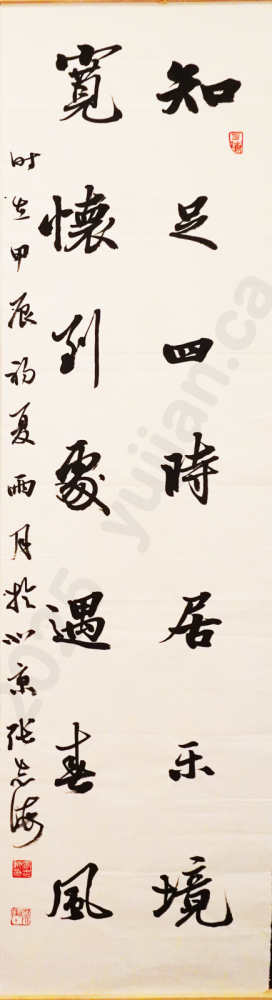 知足四時居乐境
寬懷到處遇春風
时在甲辰初夏雨月於北京张志海
2025 yuijian.ca